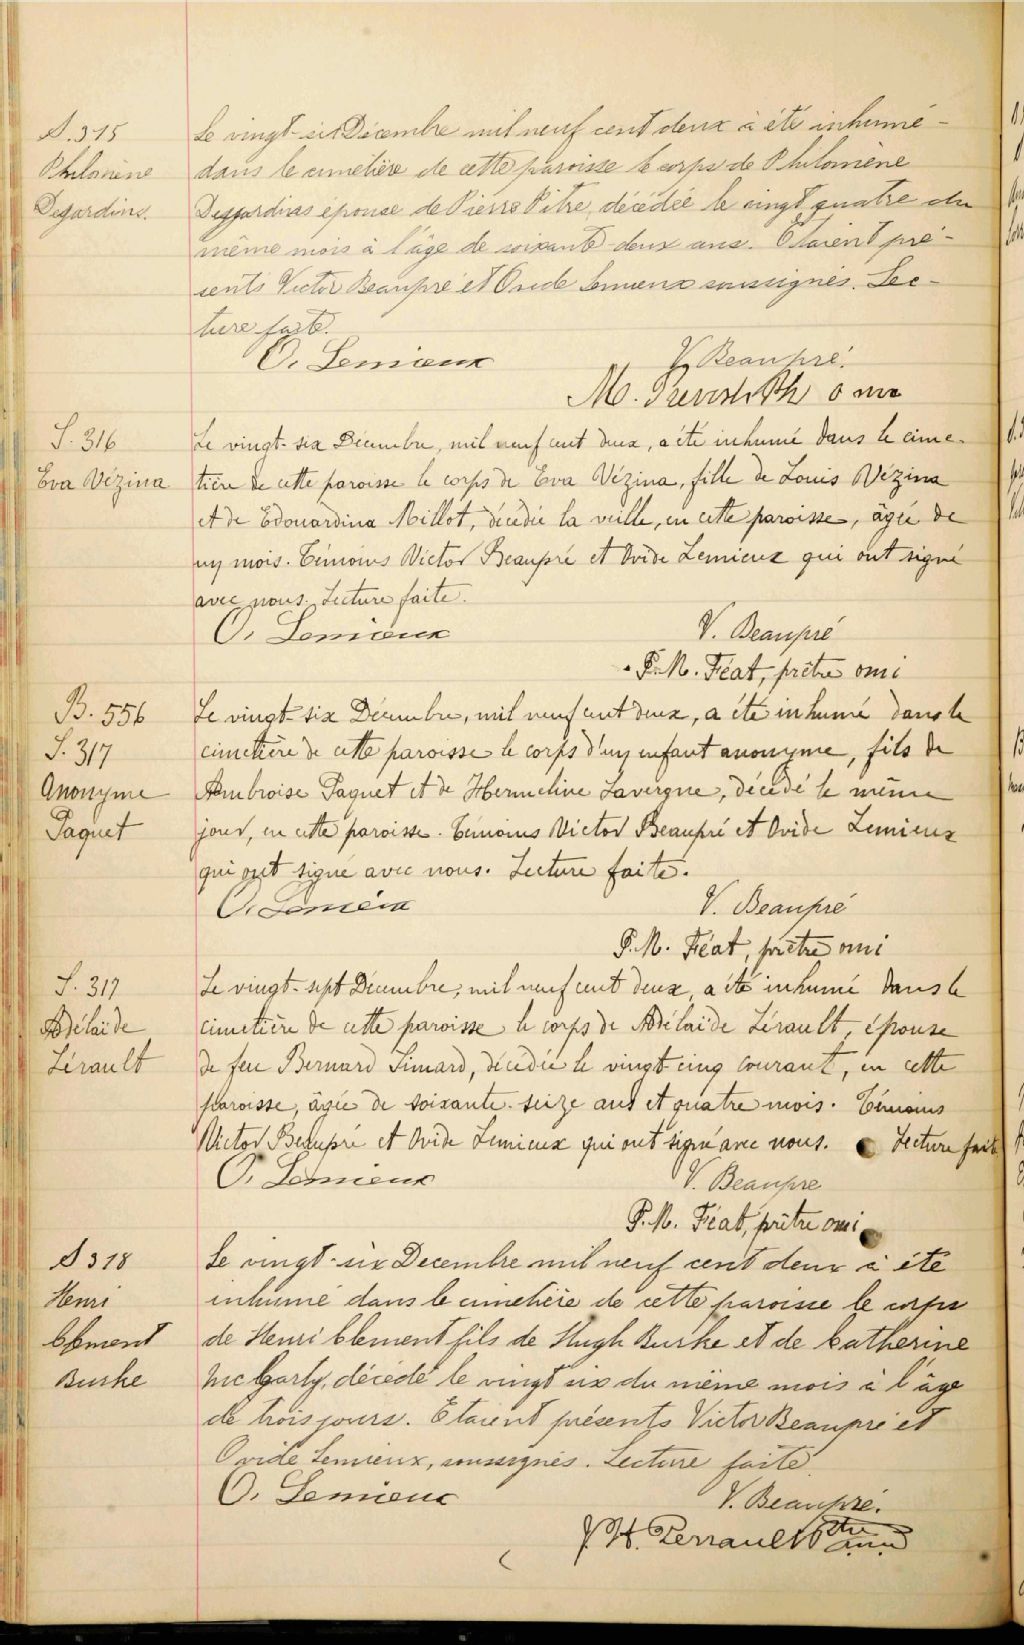 S. 315
Philomène
Degardins.
Le vingt-six Décembre mil neuf cent deux a été inhumé
dans le cimetière de cette paroisse le corps de Philomène
Degardins épouse de Pierre Pitre, décédée le vingt quatre du
même mois à l'âge de soixante-deux ans. Etaient pré-
sents Victor Beaupré et Ovide Lemieux soussignés. Lec-
ture faite.
O. Lemieux V. Beaupré.
M. Prevost Ptr o mi
S. 316
Eva Vézina
Le vingt-six Décembre, mil neuf cent deux, a été inhumé dans le cime-
tière de cette paroisse le corps de Eva Vézina, fille de Louis Vézina
et de Edouardina Millot, décédée la veille, en cette paroisse, âgée de
un mois. Témoins Victor Beaupré et Ovide Lemieux qui ont signé
avec nous. Lecture faite.
O. Lemieux V. Beaupré
P.M. Féat, prêtre omi
B. 556
S. 317
Anonyme
Paquet
Le vingt-six Décembre, mil neuf cent deux, a été inhumé dans le
cimetière de cette paroisse le corps d'un enfant anonyme, fils de
Ambroise Paquet et de Hermeline Lavergne, décédé le même
jour, en cette paroisse. Témoins Victor Beaupré et Ovide Lemieux
qui ont signé avec nous. Lecture faite.
O. Lemieux V. Beaupré
P.M. Féat, prêtre omi
S. 317
Adélaïde
Lérault
Le vingt-sept Décembre, mil neuf cent deux, a été inhumé dans le
cimetière de cette paroisse le corps de Adélaïde Lérault, épouse
de feu Bernard Simard, décédée le vingt-cinq courant, en cette
paroisse, âgée de soixante-seize ans et quatre mois. Témoins
Victor Beaupré et Ovide Lemieux qui ont signé avec nous. Lecture faite
O. Lemieux V. Beaupre
P.M. Féat, prêtre omi
S 318
Henri
Clement
Burke
Le vingt-six Decembre mil neuf cent deux a été
inhumé dans le cimetière de cette paroisse le corps
de Henri Clement fils de Hugh Burke et de Catherine
McGarly, décédé le vingt six du même mois à l'âge
de trois jours. Etaient présents Victor Beaupré et
Ovide Lemieux, soussignés. Lecture faite
O. Lemieux V. Beaupré.
J. H. Perrault Ptre omi